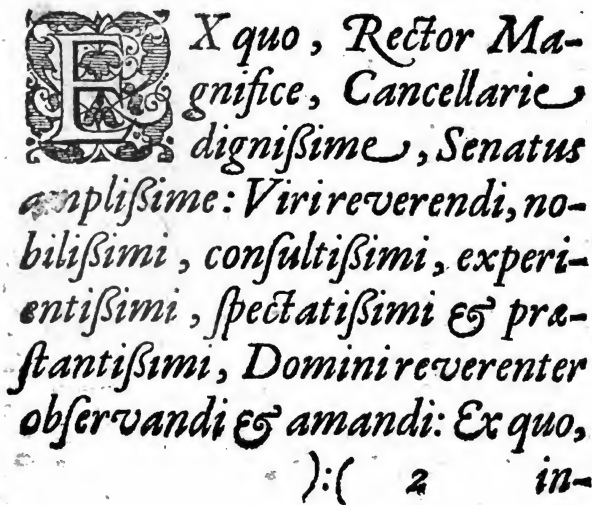 EX quo, Rector Ma-
gnifice, Cancellarie
digniſsime, Senatus
ampliſsime: Viri reverendi, no-
biliſsimi, conſultiſsimi, experi-
entiſsimi, ſpectatiſsimi & præ-
ſtantiſsimi, Domini reverenter
obſervandi & amandi: Ex quo,
):( 2 in-